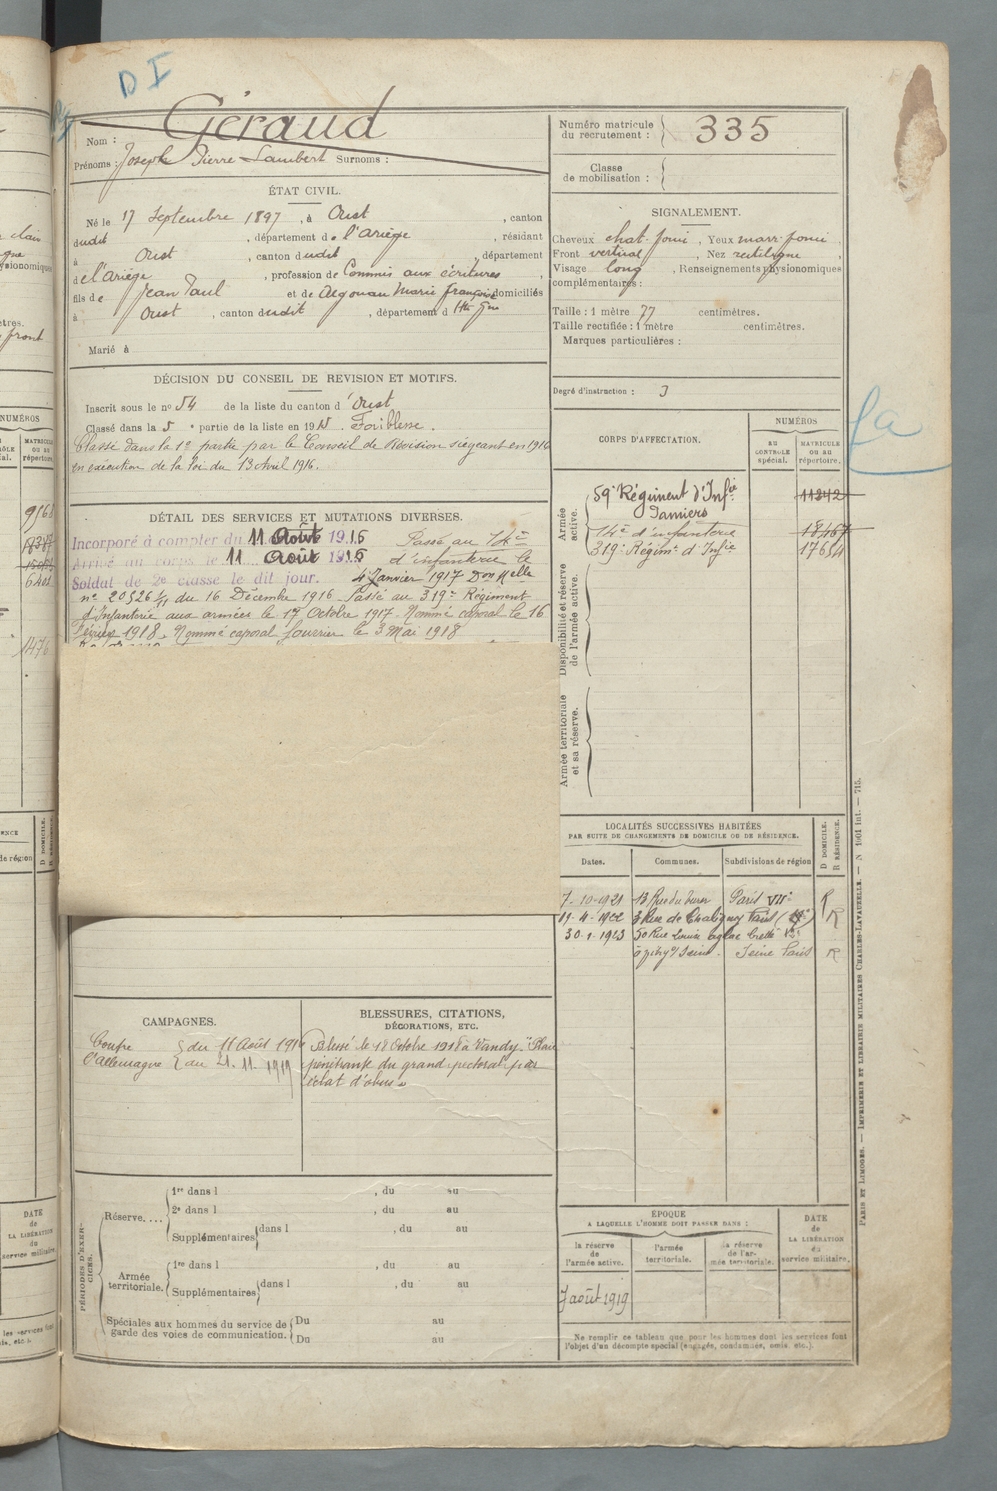 D I
Nom : Géraud
Prénoms : Joseph Pierre Lambert Surnoms :
ÉTAT CIVIL.
Né le 17 Septembre 1897, à Oust, canton
dudit, département de l'Ariège, résidant
à Oust, canton dudit, département
de l'Ariège, profession de Commis aux écritures,
fils de Jean Paul et de Aegouau Marie Françoise domiciliés
à Oust, canton dudit, département d
Marié à
DÉCISION DU CONSEIL DE REVISION ET MOTIFS.
Inscrit sous le no 54 de la liste du canton d'Oust
Classé dans la 5e partie de la liste en 19 . Faiblesse.
Classé dans la 1e partie par le Conseil de Révision siégeant en 1916
en exécution de la loi du 13 Avril 1916.
DÉTAIL DES SERVICES ET MUTATIONS DIVERSES.
Incorporé à compter du 11 Août 1916 Passé au 14e
Arrivé au corps le 11 Août 1916 d'infanterie le
Soldat de 2e classe le dit jour. 4 Janvier 1917 Don Melle
no 20526 1/11 du 16 Décembre 1916 Passé au 319e Régiment
d'Infanterie aux armées le 17 Octobre 1917. Nommé caporal le 16
Février 1918. Nommé caporal fourrier le 3 Mai 1918
CAMPAGNES.
Contre { du 11 Août 1916
l'allemagne { au 21.11.1919
BLESSURES, CITATIONS,
DÉCORATIONS, ETC.
Blessé le 18 Octobre 1918 à Vandy. "Plaie
pénétrante du grand pectoral par
éclat d'obus"
PÉRIODES D'EXERCICES.
Réserve.... 1re dans l , du au
2e dans l , du au
Supplémentaires dans l , du au
Armée territoriale. 1re dans l , du au
Supplémentaires dans l , du au
Spéciales aux hommes du service de Du au
garde des voies de communication. Du au
Numéro matricule
du recrutement : 335
Classe
de mobilisation :
SIGNALEMENT.
Cheveux chat. foncé, Yeux marr. foncé,
Front vertical, Nez rectiligne,
Visage long, Renseignements physionomiques
complémentaires :
Taille : 1 mètre 77 centimètres.
Taille rectifiée : 1 mètre centimètres.
Marques particulières :
Degré d'instruction : 3
CORPS D'AFFECTATION.
NUMÉROS
AU CONTROLE spécial.
MATRICULE OU AU répertoire.
Armée active.
59e Régiment d'Infie 11342
Pamiers
14e d'infanterie 18467
319e Régimt d'Infie 17654
Disponibilité et réserve de l'armée active.
Armée territoriale et sa réserve.
LOCALITÉS SUCCESSIVES HABITÉES
PAR SUITE DE CHANGEMENTS DE DOMICILE OU DE RÉSIDENCE.
Dates. Communes. Subdivisions de région
D DOMICILE.
R RÉSIDENCE.
7-10-1921 13 Rue du Paris VIIe R
19-4-1922 3 Rue de Chaligny Paris R
30-1-1923 50 Rue Louise
Seine Paris R
ÉPOQUE
A LAQUELLE L'HOMME DOIT PASSER DANS :
la réserve de l'armée active.
l'armée territoriale.
la réserve de l'armée territoriale.
DATE de LA LIBÉRATION du service militaire.
7 août 1919
Ne remplir ce tableau que pour les hommes dont les services font
l'objet d'un décompte spécial (engagés, condamnés, omis, etc.).
PARIS ET LIMOGES. — IMPRIMERIE ET LIBRAIRIE MILITAIRES CHARLES-LAVAUZELLE. — N 1001 int. — 715.